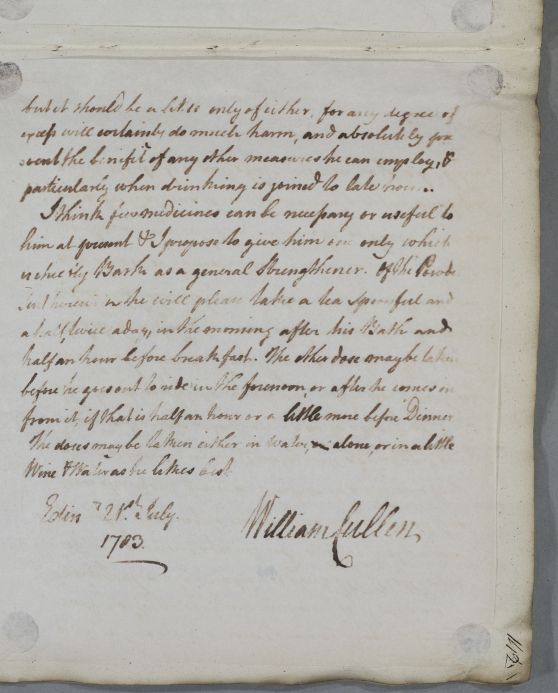 but it should be a little only of either, for any degree of
excess will certainly do much harm, and absolutely pre
vent the benefit of any other measures he can employ, &
particularly when drinking is joined to late hours.
I think few medicines can be necessary or useful to
him at present & I propose to give him one only which
is chiefly Bark as a general Strengthener. Of the Powder
he will please take a tea spoonful and
a half, twice a day, in the morning after his Bath and
half an hour before breakfast. The other dose may be taken
before he goes out to ride in the forenoon, or after he comes in
from it, if that is half an hour or a little more before Dinner
The doses may be taken either in water, alone, or in a little
Wine & Water as he likes best
Edinr 21st July
1783.
William Cullen